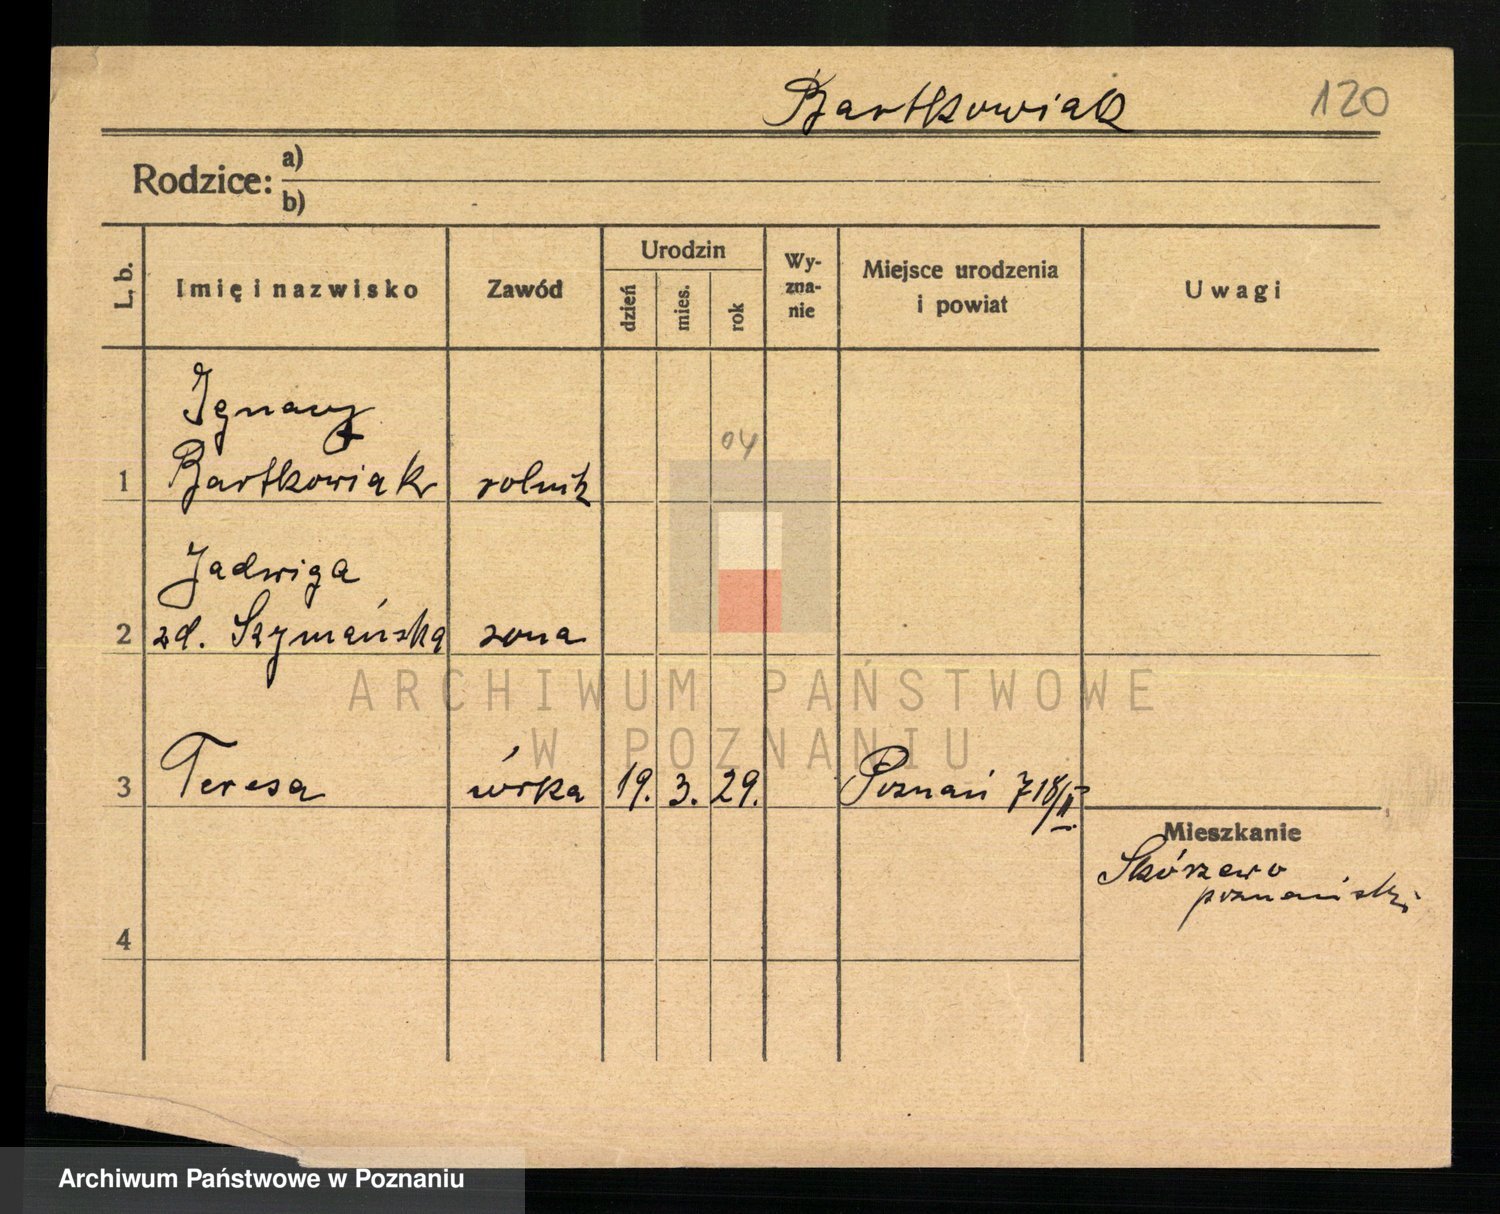 Bartkowiak 120
Rodzice: a)
b)
L. b. Imię i nazwisko Zawód Urodzin dzień mies. rok Wy-zna-nie Miejsce urodzenia i powiat Uwagi
Ignacy
04
1 Bartkowiak rolnik
Jadwiga
2 zd. Szymańska żona
ARCHIWUM PAŃSTWOWE
W POZNANIU
3 Teresa córka 19. 3. 29. Poznań 718/II
Mieszkanie
Skórzewo
poznański
4
Archiwum Państwowe w Poznaniu